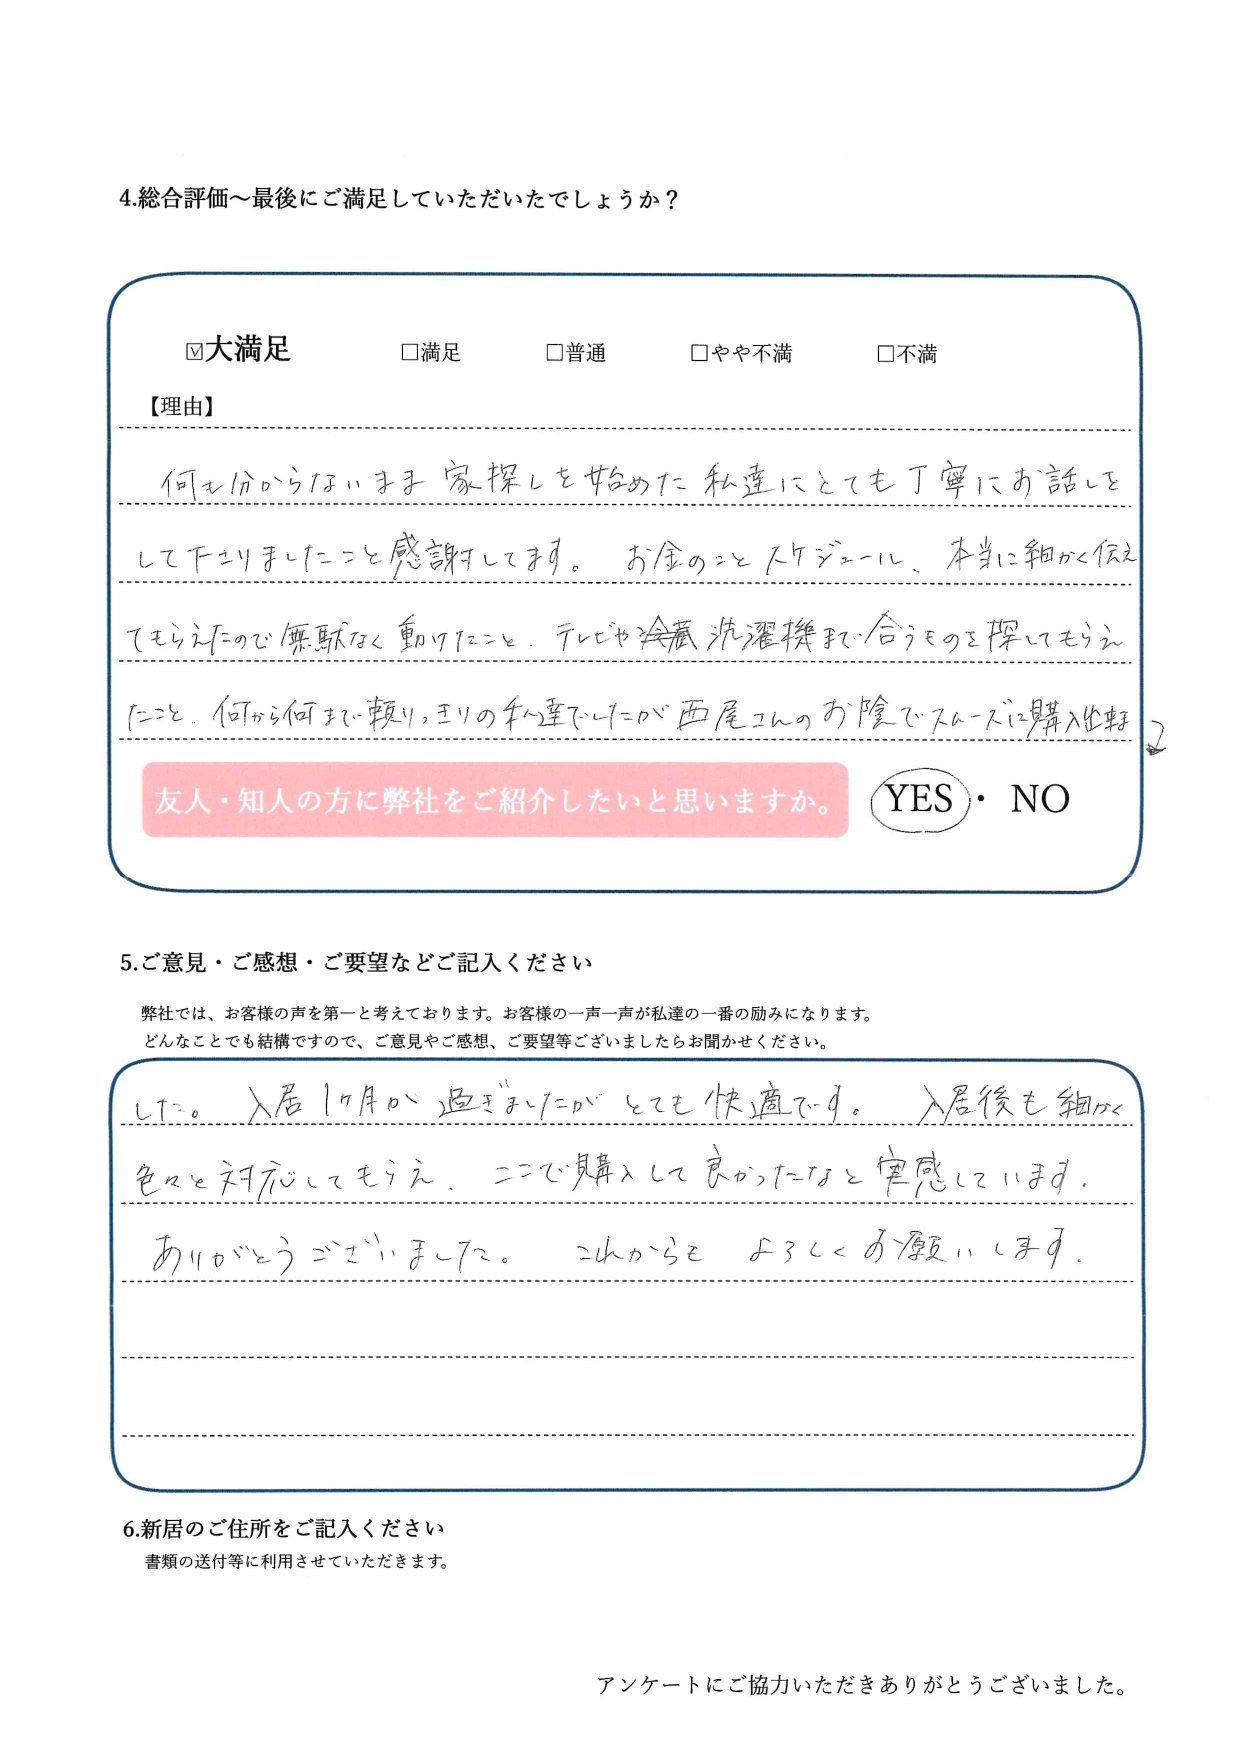 4.総合評価～最後にご満足していただいたでしょうか？
☑大満足 □満足 □普通 □やや不満 □不満
【理由】
何も分からないまま 家探しを始めた 私達にとても丁寧にお話しを
して下さりましたこと感謝してます。 お金のこと スケジュール、本当に細かく伝え
てもらえたので無駄なく動けたこと、テレビや冷蔵 洗濯機まで合うものを探してもらえ
たこと、何から何まで頼りっきりの私達でしたが 西尾さんのお陰でスムーズに購入出来ま
友人・知人の方に弊社をご紹介したいと思いますか。 YES ・ NO
5.ご意見・ご感想・ご要望などご記入ください
弊社では、お客様の声を第一と考えております。お客様の一声一声が私達の一番の励みになります。
どんなことでも結構ですので、ご意見やご感想、ご要望等ございましたらお聞かせください。
した。 入居1ヶ月が過ぎましたが とても快適です。 入居後も細かく
色々と対応してもらえ、ここで購入して良かったなと実感しています。
ありがとうございました。 これからも よろしくお願いします。
6.新居のご住所をご記入ください
書類の送付等に利用させていただきます。
アンケートにご協力いただきありがとうございました。